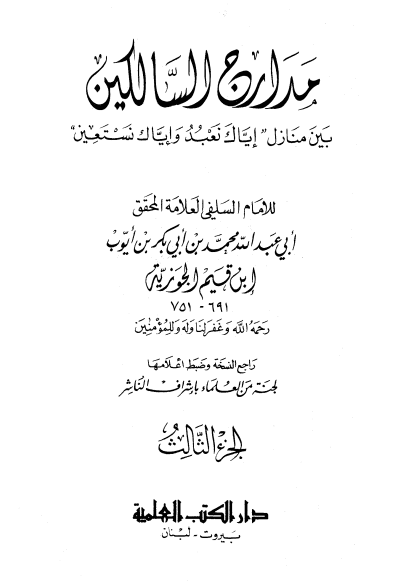 مَدَارِج السَّالكين
بَين مَنازل "إيَّاكَ نَعْبُدُ وَإيَّاكَ نَسْتَعِين"
للامَام السَلفي العلّامَة المحقق
أبي عبد الله محمّد بن أبي بكر بن أيّوب
ابن قيم الجوزيّة
٦٩١ - ٧٥١
رحمَهُ الله وَغفرلناوَله وَللمُؤمنين
راجع النسَخة وضبط اعلَامهَا
لجنة من العلماء باشراف الناشر
الجزء الثّالث
دار الكتب العلمية
بَيروت - لبنان